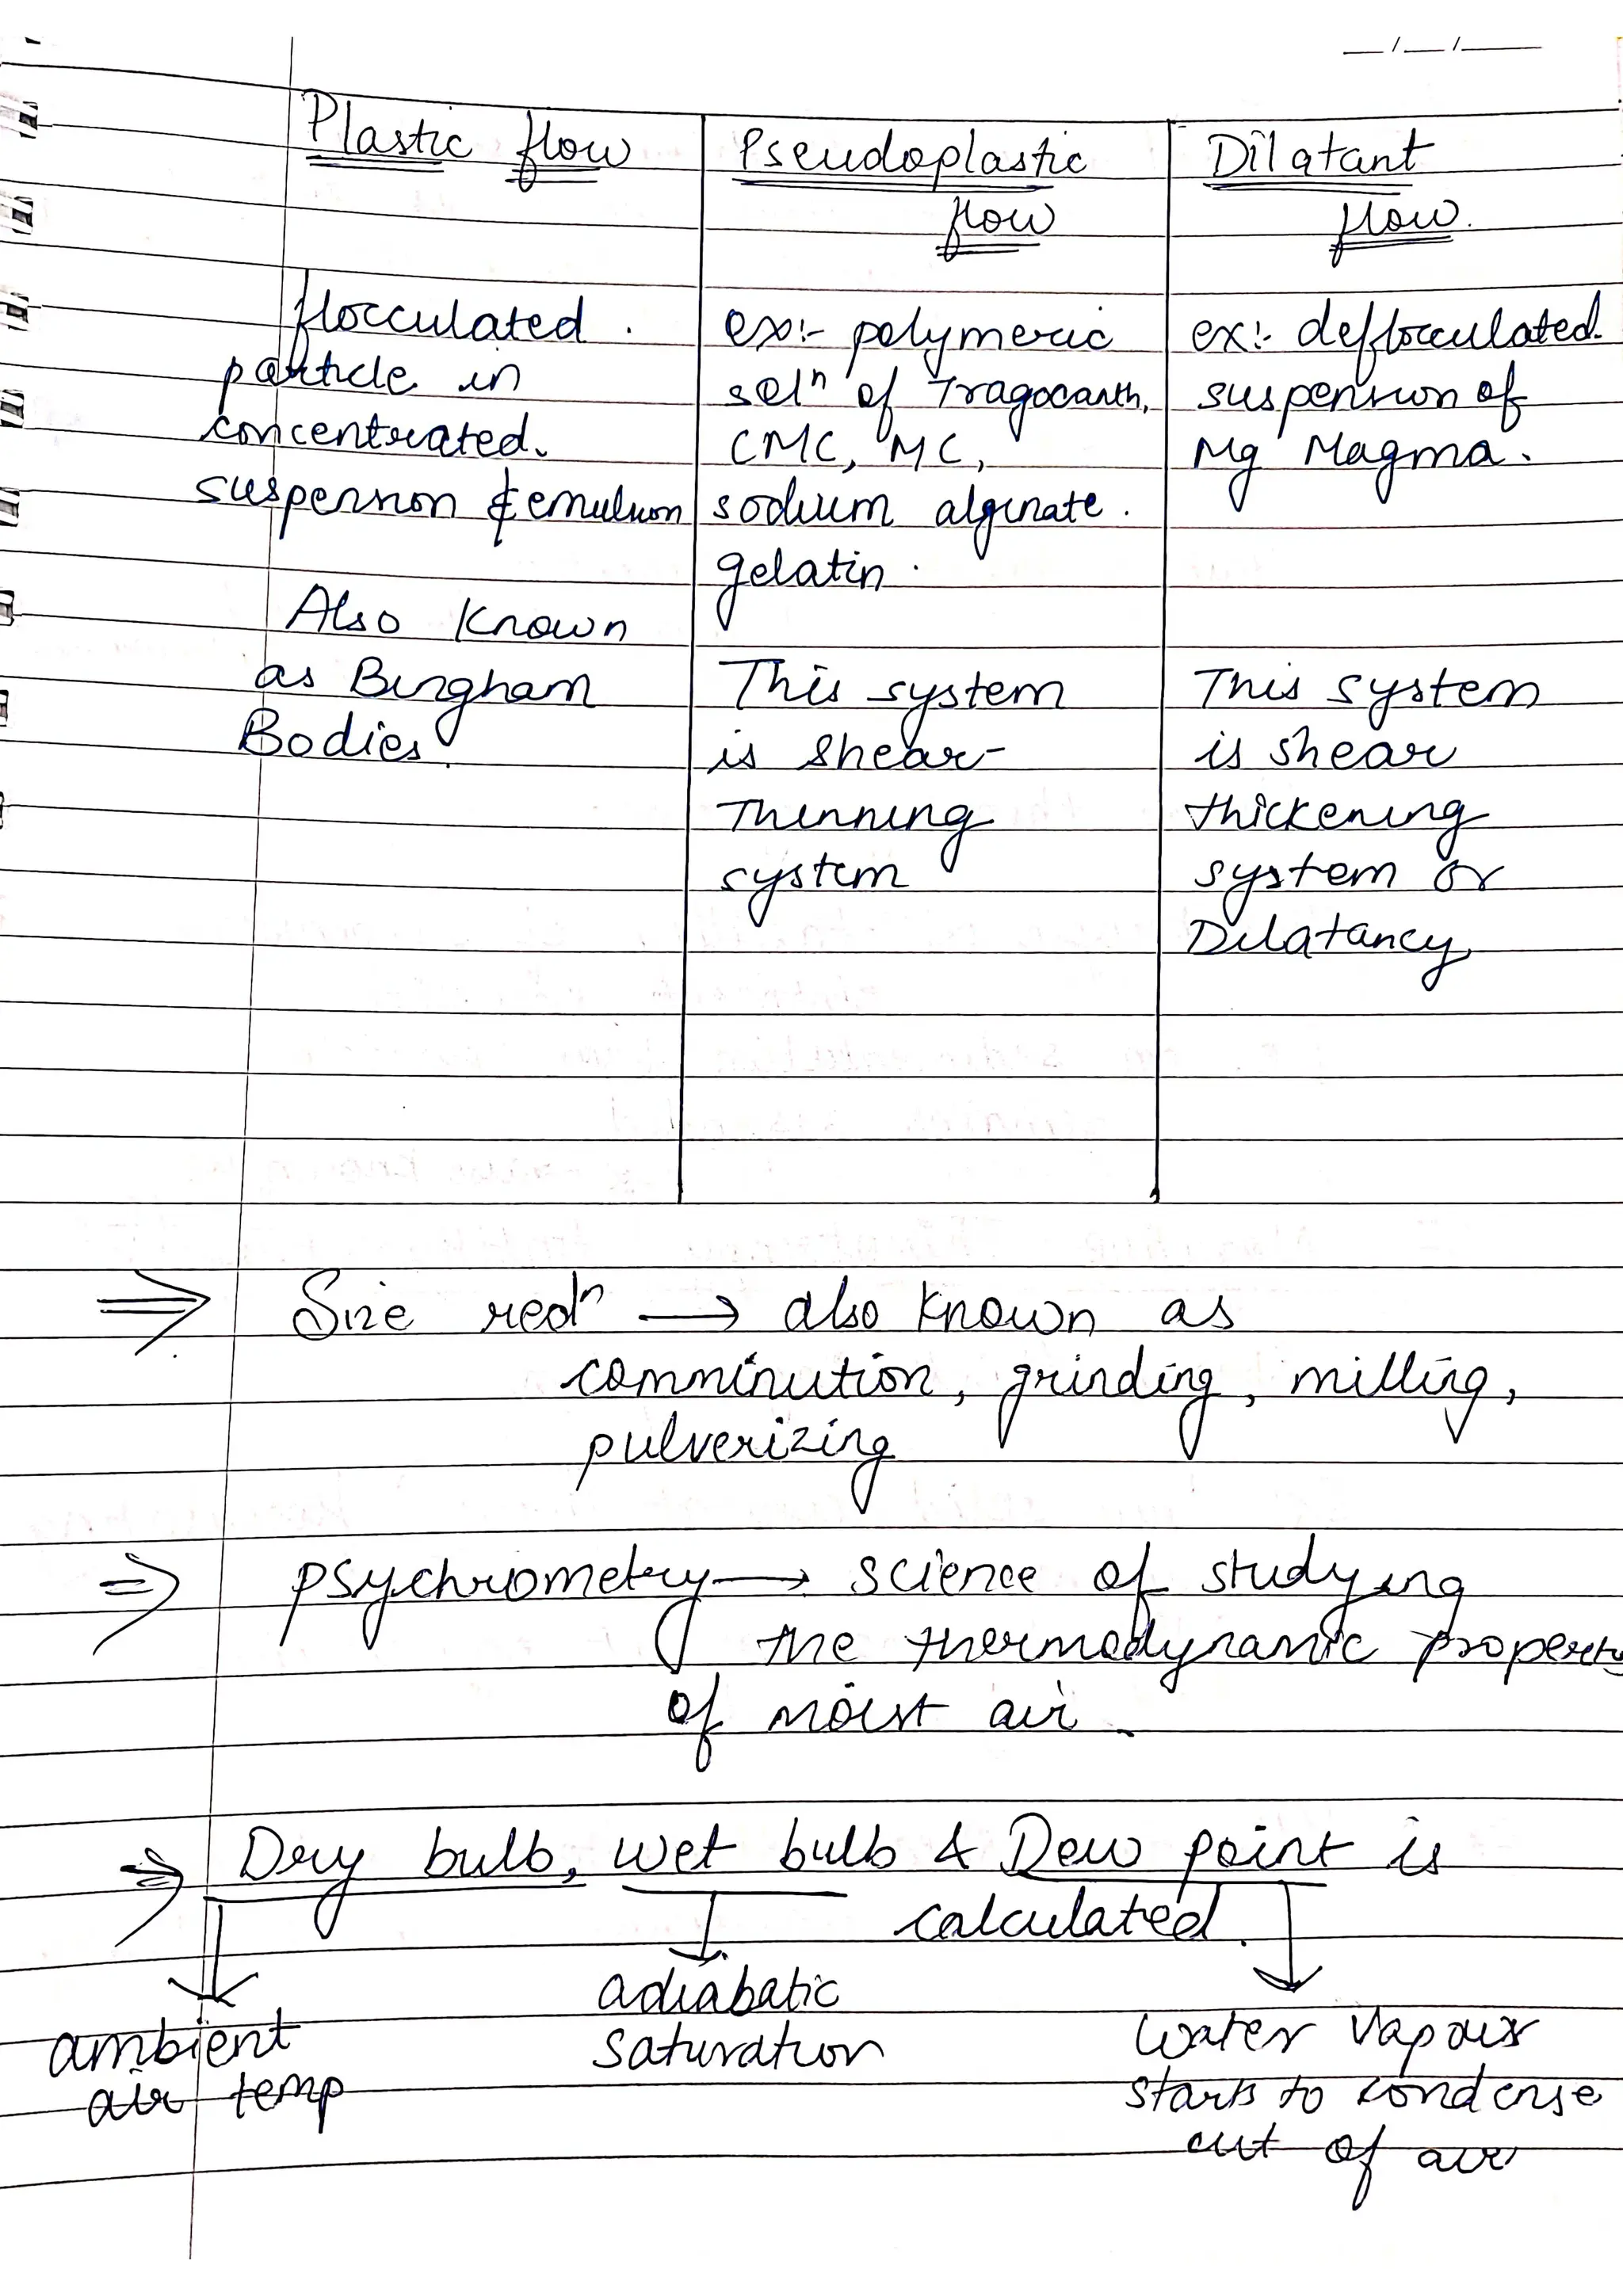 __/__/____
Plastic flow
flocculated.
particle in
concentrated.
suspension & emulsion
Also Known
as Bingham
Bodies.
Pseudoplastic
flow
ex:- polymeric
solⁿ of Tragocanth,
CMC, MC,
sodium alginate.
gelatin.
This system
is shear-
Thinning
system
Dilatant
flow.
ex:- deflocculated.
suspension of
Mg Magma.
This system
is shear
thickening
system or
Dilatancy.
⇒ Size redⁿ → also known as
comminution, grinding, milling,
pulverizing
⇒ psychrometry → science of studying
the thermodynamic property
of moist air.
⇒ Dry bulb, wet bulb & Dew point is
calculated.
ambient
air temp
adiabatic
saturation
Water Vapour
starts to condense
out of air